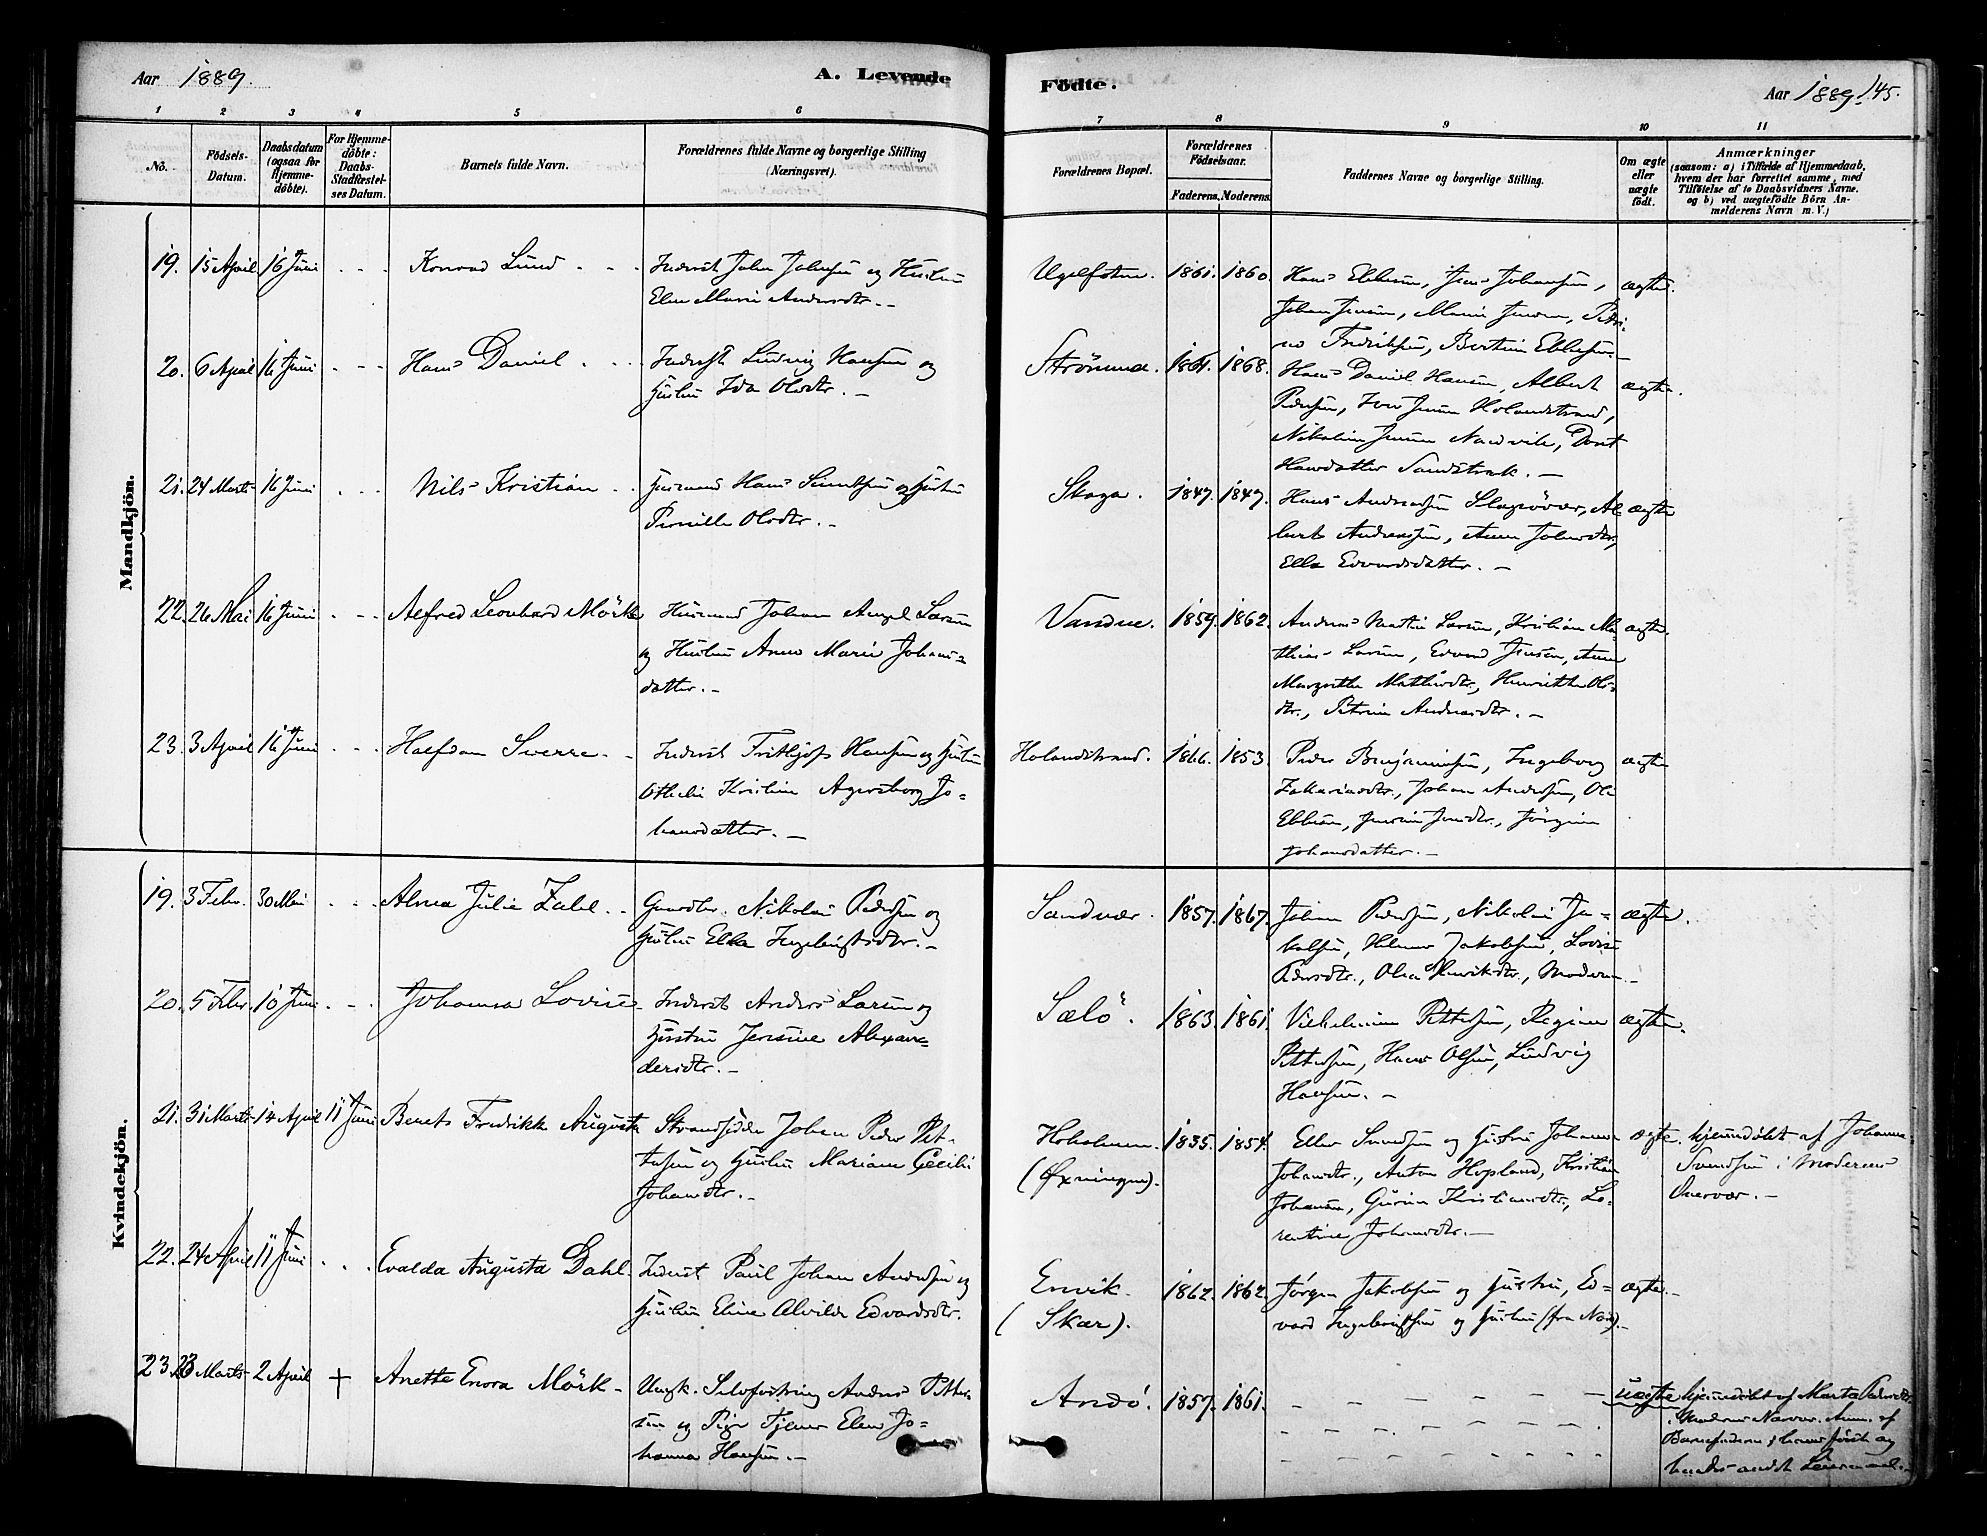 Aar 1889.
A. Levende
Födte.
Aar 1889. 145.
1 2 3 4 5 6 7 8 9 10 11
No.
Födsels-
Datum.
Daabsdatum
(ogsaa for
Hjemme-
döbte).
For Hjemme-
döbte:
Daabs-
Stadfæstel-
ses Datum.
Barnets fulde Navn.
Forældrenes fulde Navne og borgerlige Stilling
(Næringsvei).
Forældrenes Bopæl.
Forældrenes
Födselsaar.
Faderens. Moderens.
Faddernes Navne og borgerlige Stilling.
Om ægte
eller
uægte
födt.
Anmærkninger
(saasom: a) i Tilfælde af Hjemmedaab,
hvem der har forrettet samme, med
Tilföielse af to Daabsvidners Navne.
og b) ved uægtefödte Börn An-
melderens Navn m. V.)
Mandkjön.
19. 15 April 16 Juni - - - Konrad Lund - - Inderst Johan Johansen og Hustru
Elen Marie Andersdtr. -
1861. 1860. Hans Ebbesen, Jens Johansen, ægte.
Johan Jensen, Marie Jensen, Petri-
ne Fredriksen, Bertine Ebbesen -
20. 6 April 16 Juni - - - Hans Daniel - - - Inderst Ludvig Hansen og
Hustru Ida Olsdtr. -
1868. Hans Daniel Hansen, Albert ægte.
Pedersen, Iver Jensen Holandstrand,
Nikoline Jensen Nordvik, Doret
Hansdatter Sandstrak. -
21. 24 Marts 16 Juni - - - Nils Kristian - - Husmand Hans og Hustru
Pernille Olsdtr. -
Skaga. 1847. 1847. Hans Andreassen Slapövær, Al- ægte
bert Andreassen, Anne Johnsdtr,
Ella Edvardsdatter. -
22. 26 Mai 16 Juni - - - Alfred Leonhard Mörk Husmand Johan Angel Larsen
og Hustru Anne Marie Johans-
datter. -
Vandve. 1859. 1862. Andreas Martin Larsen, Kristian Ma- ægte.
thias Larsen, Edvard Jensen, Anne
Margrethe Mathisdtr., Henriette Ols-
dtr., Petrine Andreasdtr. -
23. 3 April 16 Juni - - - Halfdan Sverre - - Inderst Frithjof Hansen og Hustru
Othelie Kristine Agersborg Jo-
hansdatter. -
Holandstrand. 1866. 1853. Peder Benjaminsen, Ingeborg ægte
Zakariasdtr., Johan Andersen, Ole
Ebbesen, Jensine Jensdtr., Jörgine
Johansdatter. -
Kvindekjön.
19. 3 Febr. 30 Mai - - - Alma Julie Zahl - - Gaardbr. Nikolai Pedersen og
Hustru Ella Ingebrigtsdtr. -
Sandvær. 1857. 1867. Johan Pedersen, Nikolai Ja- ægte.
kobsen, Helmer Jakobsen, Lovise
Pedersdtr., Olea Henriksdtr., Moderen -
20. 5 Febr 10 Juni - - Johanna Lovise - Inderst Anders Larsen og
Hustru Jensine Alexan-
dersdtr. -
Sælö. 1863. 1861. Vilhelmine Pettersen, Regine ægte.
Pettersen, Hans Olsen, Ludvig
Hansen. -
21. 31 Marts 14 April 11 Juni Berets Fredrikke Augusta Strandsidder Johan Peder Pet-
tersen og Hustru Mariane Cecilie
Johansdtr. -
Hoholmen. 1835. 1854. Eller Svendsen og Hustru Johanna ægte. hjemmedöbt af Johanna
(Øxningen). Johansdtr., Anton Hopland, Kristian Svendsen i Moderens
Johansen, Gurine Kristiansdtr., Lo- Nærvær. -
rentine Johansdtr. -
22. 24 April 11 Juni - - - Evalda Augusta Dahl. Inderst Paul Johan Andersen og
Hustru Eline Alvilde Edvardsdtr.
Envik. 1862. 1862. Jørgen Jakobsen og Hustru, Ed- ægte. -
(Skar). vard Ingebrigtsen og Hustru (fra Nord). -
23. 23 Marts 2 April + Anette Enora Mörk - Ungk. Selvforsörg Anders Petter-
sen og Pige Tjener Elen Jo-
hanna Hansen. -
Andö. 1857. 1861. - - - - - uægte hjemmedöbt af Marta Pedersdtr.
i Moderens Nærvær. Anm. af
Barnefaderen; hans förste og
hendes andet Leiermaal. -